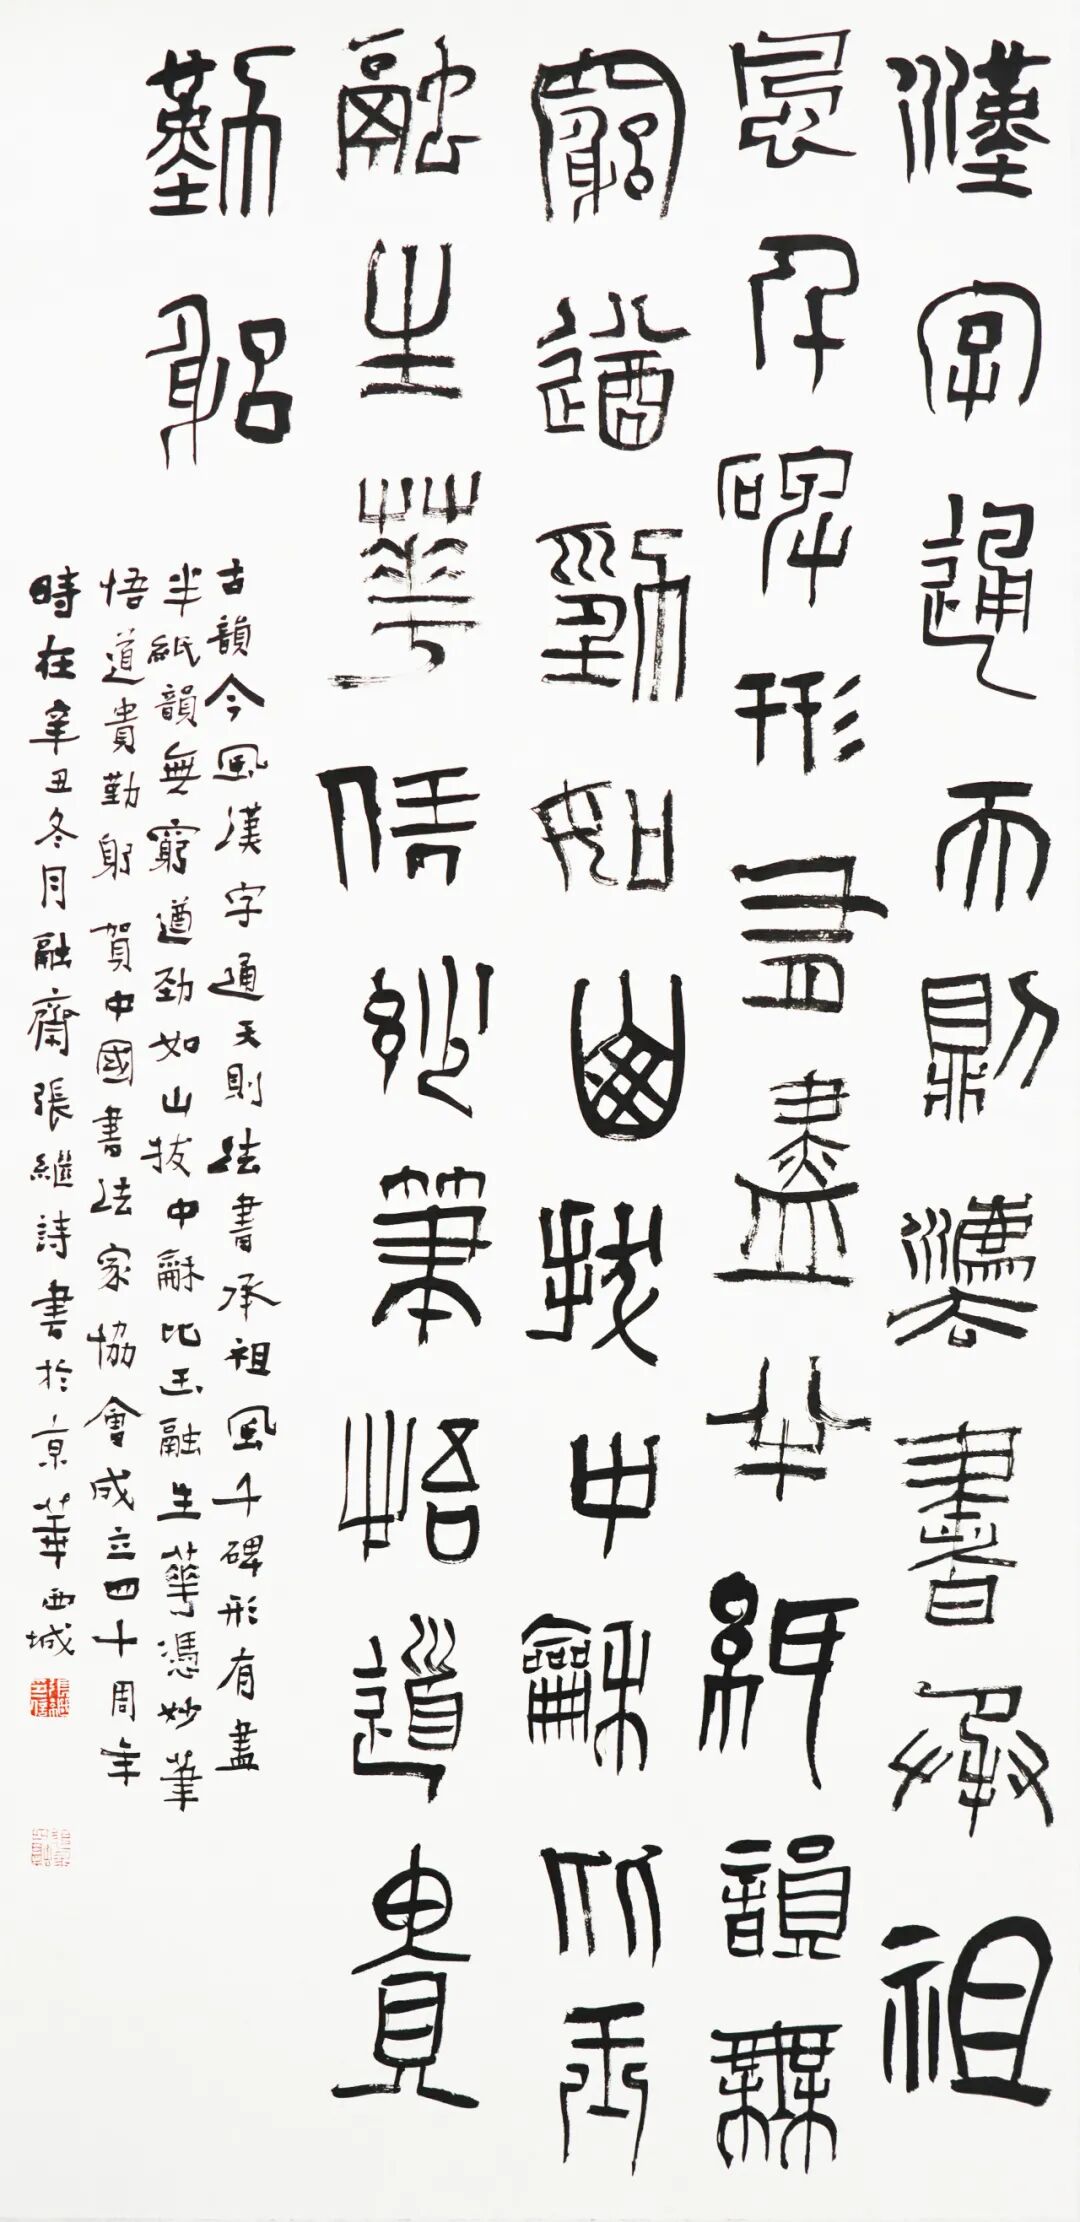 漢字通天則灋書承祖
風千碑形有盡半紙韻無
窮遒勁如山拔中龢比玉
融生華憑妙筆悟道貴
勤躬
古韻今風漢字通天則法書承祖風千碑形有盡
半紙韻無窮遒勁如山拔中龢比玉融生華憑妙筆
悟道貴勤躬 賀中國書法家協會成立四十周年
時在辛丑冬月融齋張繼詩書於京華西城